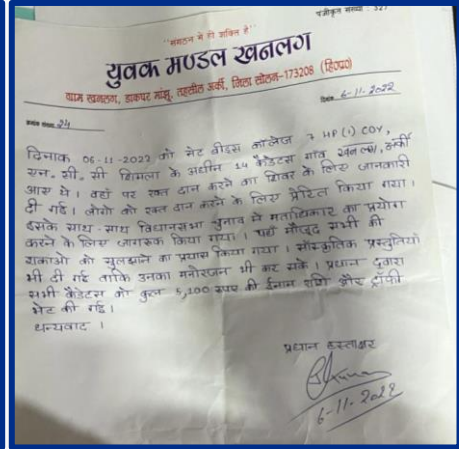 पंजीकृत संख्या : 327
"संगठन में ही शक्ति है"
युवक मण्डल खनलग
ग्राम खनलग, डाकघर मांझू, तहसील अर्की, जिला सोलन-173208 (हि०प्र०)
क्रमांक संख्या 24 दिनांक 6-11-2022
दिनाक 06-11-2022 को सेंट बीडस कॉलेज 7 HP (1) COY,
एन. सी. सी शिमला के अधीन 14 कैडेटस गाँव खनलग, अर्की
आए थे। वहाँ पर रक्त दान करने का शिवर के लिए जानकारी
दी गई। लोगो को रक्त दान करने के लिए प्रेरित किया गया।
इसके साथ-साथ विधानसभा चुनाव में मताधिकार का प्रयोग
करने के लिए जागरूक किया गया। वहाँ मौजूद सभी की
शंकाओ को सुलझाने का प्रयास किया गया। सांस्कृतिक प्रस्तुतियाँ
भी दी गई ताकि उनका मनोरंजन भी कर सके। प्रधान दुवारा
सभी कैडेटस को कुल 5,100 रुपए की ईनाम राशि और ट्रॉफी
भेंट की गई।
धन्यवाद।
प्रधान हस्ताक्षर
6-11-2022